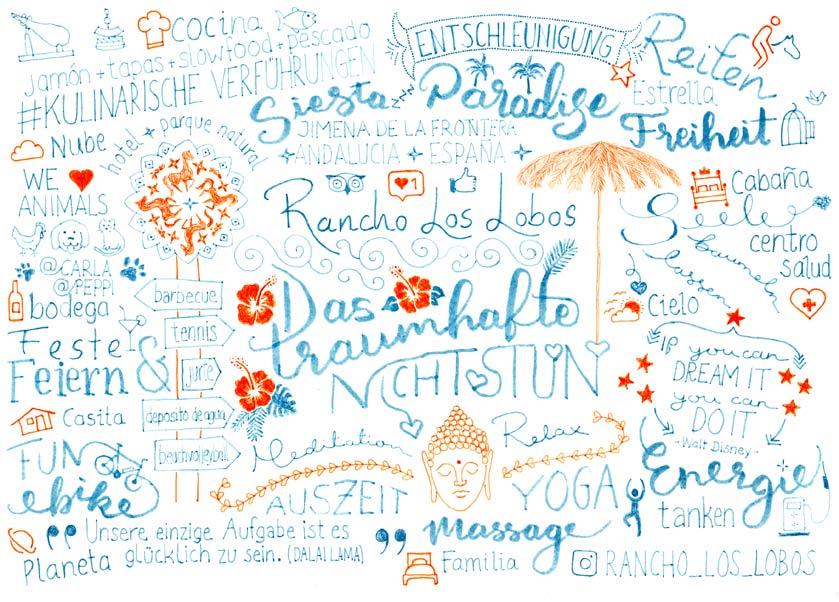 cocina
jamón + tapas + slowfood + pescado
#KULINARISCHE VERFÜHRUNGEN
ENTSCHLEUNIGUNG
Reiten
Siesta zzz Paradise
Estrella
Freiheit
JIMENA DE LA FRONTERA
ANDALUCIA + ESPAÑA
Nube
hotel + parque natural
WE ♥
ANIMALS
@CARLA
@PEPPI
1
Rancho Los Lobos
Cabaña
Seele
baumeln
lassen
centro
salud
bodega
barbecue
tennis
jurte
deposito de agua
beachvolleyball
Das
traumhafte
NICHTSTUN
Cielo
IF you can
DREAM IT
you can
DO IT
- Walt Disney -
Feste
& Feiern
Casita
FUN
ebike
Meditation
Relax
AUSZEIT
YOGA
Energie
tanken
Massage
„ Unsere einzige Aufgabe ist es
glücklich zu sein. (DALAI LAMA) "
Planeta
Familia
RANCHO_LOS_LOBOS